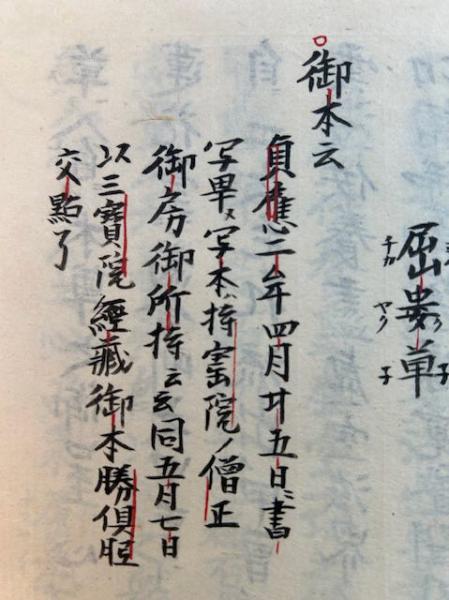 屈 草
御本云
貞應二年四月廿五日ニ書
写畢又写本ハ持 院ノ僧正
御房御所持云云同五月七日
以三寶院經藏御本勝倶胝
交點了